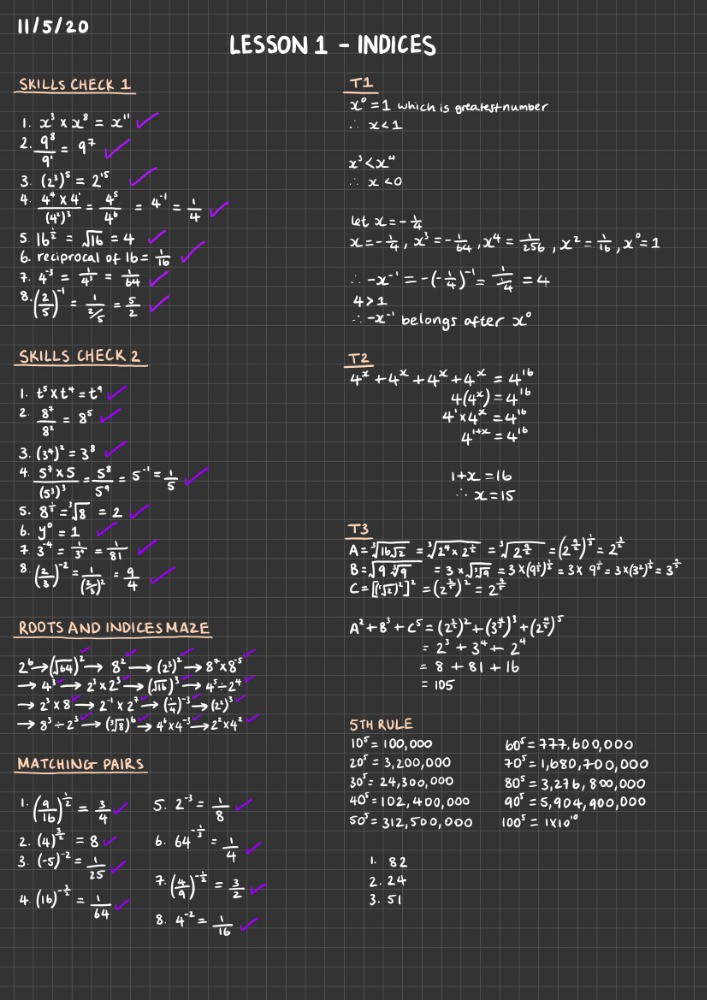 11/5/20
LESSON 1 - INDICES
SKILLS CHECK 1
1. x³ × x⁸ = x¹¹
2. 9⁸/9¹ = 9⁷
3. (2³)⁵ = 2¹⁵
4. 4⁴ × 4¹/(4²)³ = 4⁵/4⁶ = 4⁻¹ = 1/4
5. 16^½ = √16 = 4
6. reciprocal of 16 = 1/16
7. 4⁻³ = 1/4³ = 1/64
8. (2/5)⁻¹ = 1/(2/5) = 5/2
SKILLS CHECK 2
1. t⁵ × t⁴ = t⁹
2. 8⁷/8² = 8⁵
3. (3⁴)² = 3⁸
4. 5⁷ × 5/(5³)³ = 5⁸/5⁹ = 5⁻¹ = 1/5
5. 8^⅓ = ³√8 = 2
6. y⁰ = 1
7. 3⁻⁴ = 1/3⁴ = 1/81
8. (2/3)⁻² = 1/(2/3)² = 9/4
ROOTS AND INDICES MAZE
2⁶ → (√64)² → 8² → (2³)² → 8⁴ × 8⁵
→ 4³ → 2³ × 2³ → (√16)³ → 4⁵ ÷ 2⁴
→ 2³ × 8 → 2⁻¹ × 2⁷ → (1/4)⁻³ → (2²)³
→ 8³ ÷ 2³ → (³√8)⁶ → 4⁶ × 4⁻³ → 2² × 4²
MATCHING PAIRS
1. (9/16)^½ = 3/4
2. (4)^(3/2) = 8
3. (-5)⁻² = 1/25
4. (16)^(-3/2) = 1/64
5. 2⁻³ = 1/8
6. 64^(-1/3) = 1/4
7. (4/9)^(-1/2) = 3/2
8. 4⁻² = 1/16
T1
x⁰ = 1 which is greatest number
∴ x < 1
x³ < x⁴
∴ x < 0
let x = -1/4
x = -1/4, x³ = -1/64, x⁴ = 1/256, x² = 1/16, x⁰ = 1
∴ -x⁻¹ = -(-1/4)⁻¹ = 1/(1/4) = 4
4 > 1
∴ -x⁻¹ belongs after x⁰
T2
4ˣ + 4ˣ + 4ˣ + 4ˣ = 4¹⁶
4(4ˣ) = 4¹⁶
4¹ × 4ˣ = 4¹⁶
4¹⁺ˣ = 4¹⁶
1 + x = 16
∴ x = 15
T3
A² + B³ + C⁵
= 2³ + 3⁴ + 2⁴
= 8 + 81 + 16
= 105
5TH RULE
10⁵ = 100,000
20⁵ = 3,200,000
30⁵ = 24,300,000
40⁵ = 102,400,000
50⁵ = 312,500,000
60⁵ = 777,600,000
70⁵ = 1,680,700,000
80⁵ = 3,276,800,000
90⁵ = 5,904,900,000
100⁵ = 1×10¹⁰
1. 82
2. 24
3. 51